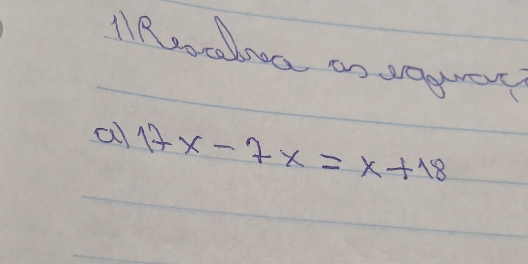 1) Resolva as equaçõ
a) 17x - 7x = x + 18